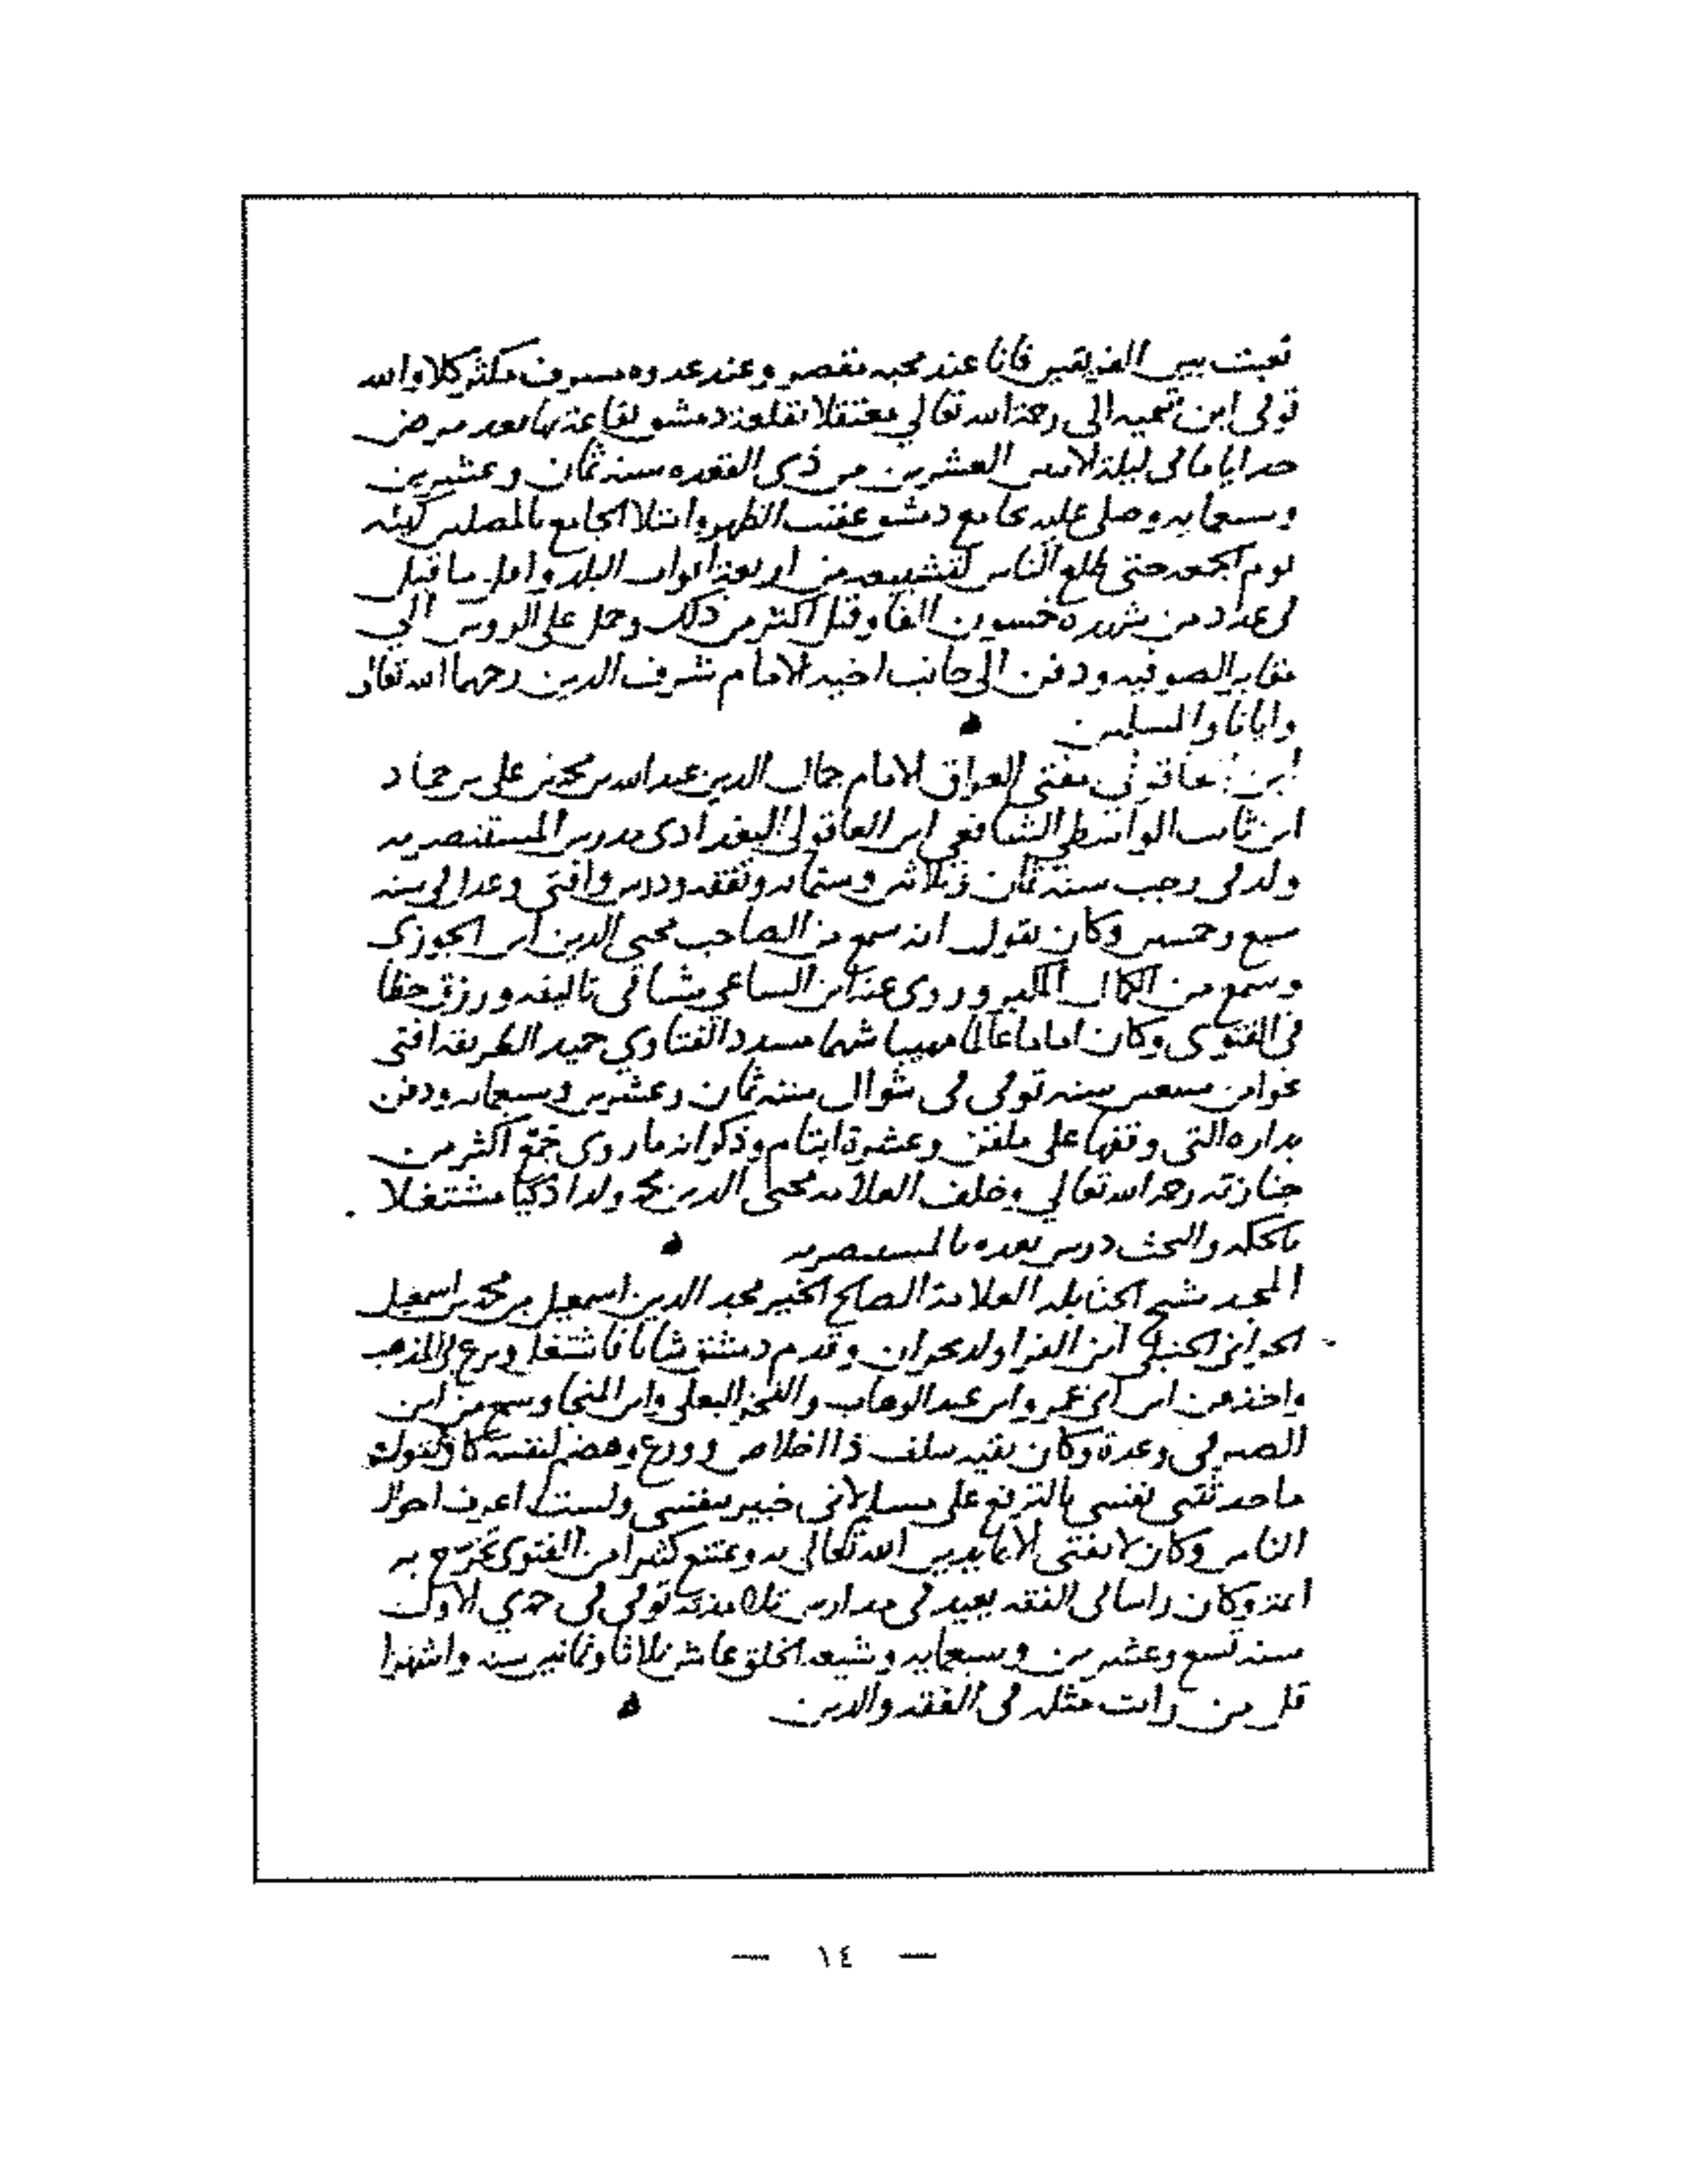 تعبت بين الفريقين فانا عند محبه مقصر وعند عدوه مسرف مكثر كلا والله
توفى ابن تيمية الى رحمة الله تعالى معتقلا بقلعة دمشق بقاعة بها بعد مرض
جد اياما فى ليلة الاثنين العشرين من ذى القعده سنة ثمان وعشرين
وسبعمايه وصلى عليه بجامع دمشق عقيب الظهر وامتلا الجامع بالمصلين كهيئة
يوم الجمعه حتى طلع الناس لتشييعه من اربعة ابواب البلد واقل ما قيل
فى عدد من شهده خمسون الفا وقيل اكثر من ذلك وحمل على الروس الى
مقابر الصوفيه ودفن الى جانب اخيه الامام شرف الدين رحمهما الله تعالى
وايانا والمسلمين
ابن العاقولى مفتى العراق الامام جمال الدين عبد الله بن محمد بن على بن حماد
ابن ثابت الواسطى الشافعى ابن العاقولى البغدادى مدرس المستنصريه
ولد فى رجب سنة ثمان وثلاثين وستمايه وتفقه ودرس وافتى وعدا لى سنه
سبع وخمسين وكان يقول انه سمع من الصاحب محيى الدين ابن الجوزى
وسمع من الكمال الكبير وروى عنه ابن الساعى شيا فى تاليفه ورزق حظا
فى الفتوى وكان اماما عالما مهيبا شهما مسدد الفتاوي حميد الطريقة افتى
نحوا من سبعين سنه توفى فى شوال سنة ثمان وعشرين وسبعمايه ودفن
بداره التى وقفها على ملقن وعشرة ايتام وذكر انه ما روى جمع اكثر من
جنازته رحمه الله تعالى وخلف العلامه محيى الدين محمد ولدا ذكيا مشتغلا
بالحكمه والبحث درس بعده بالمستنصريه
المجد شيخ الحنابله العلامة الصالح الخير مجد الدين اسمعيل بن محمد بن اسمعيل
الحرانى الحنبلى ابن الفرا ولد بحران وقدم دمشق شابا فاشتغل وبرع فى المذهب
واخذ عن ابن ابى عمر وابن عبد الوهاب والفخر البعلى وابن المنجا وسمع من ابن
الصيرفى وعدة وكان بقية سلف ذا اخلاص وورع وهضم لنفسه كان يقول
ما حدثتنى نفسى بالترفع على مسلم لانى خبير بنفسى ولست اعرف احوال
الناس وكان لا يفتى الا بما يدين الله تعالى به ويمتنع كثيرا من الفتوى تخرج به
ائمة وكان راسا فى الفقه يعيد فى مدارس تلامذته توفى فى جمدي الاول
سنة تسع وعشرين وسبعمايه وشيعه الخلق عاش ثلاثا وثمانين سنه واشهرا
قل من رايت مثله فى الفقه والدين
— ١٤ —